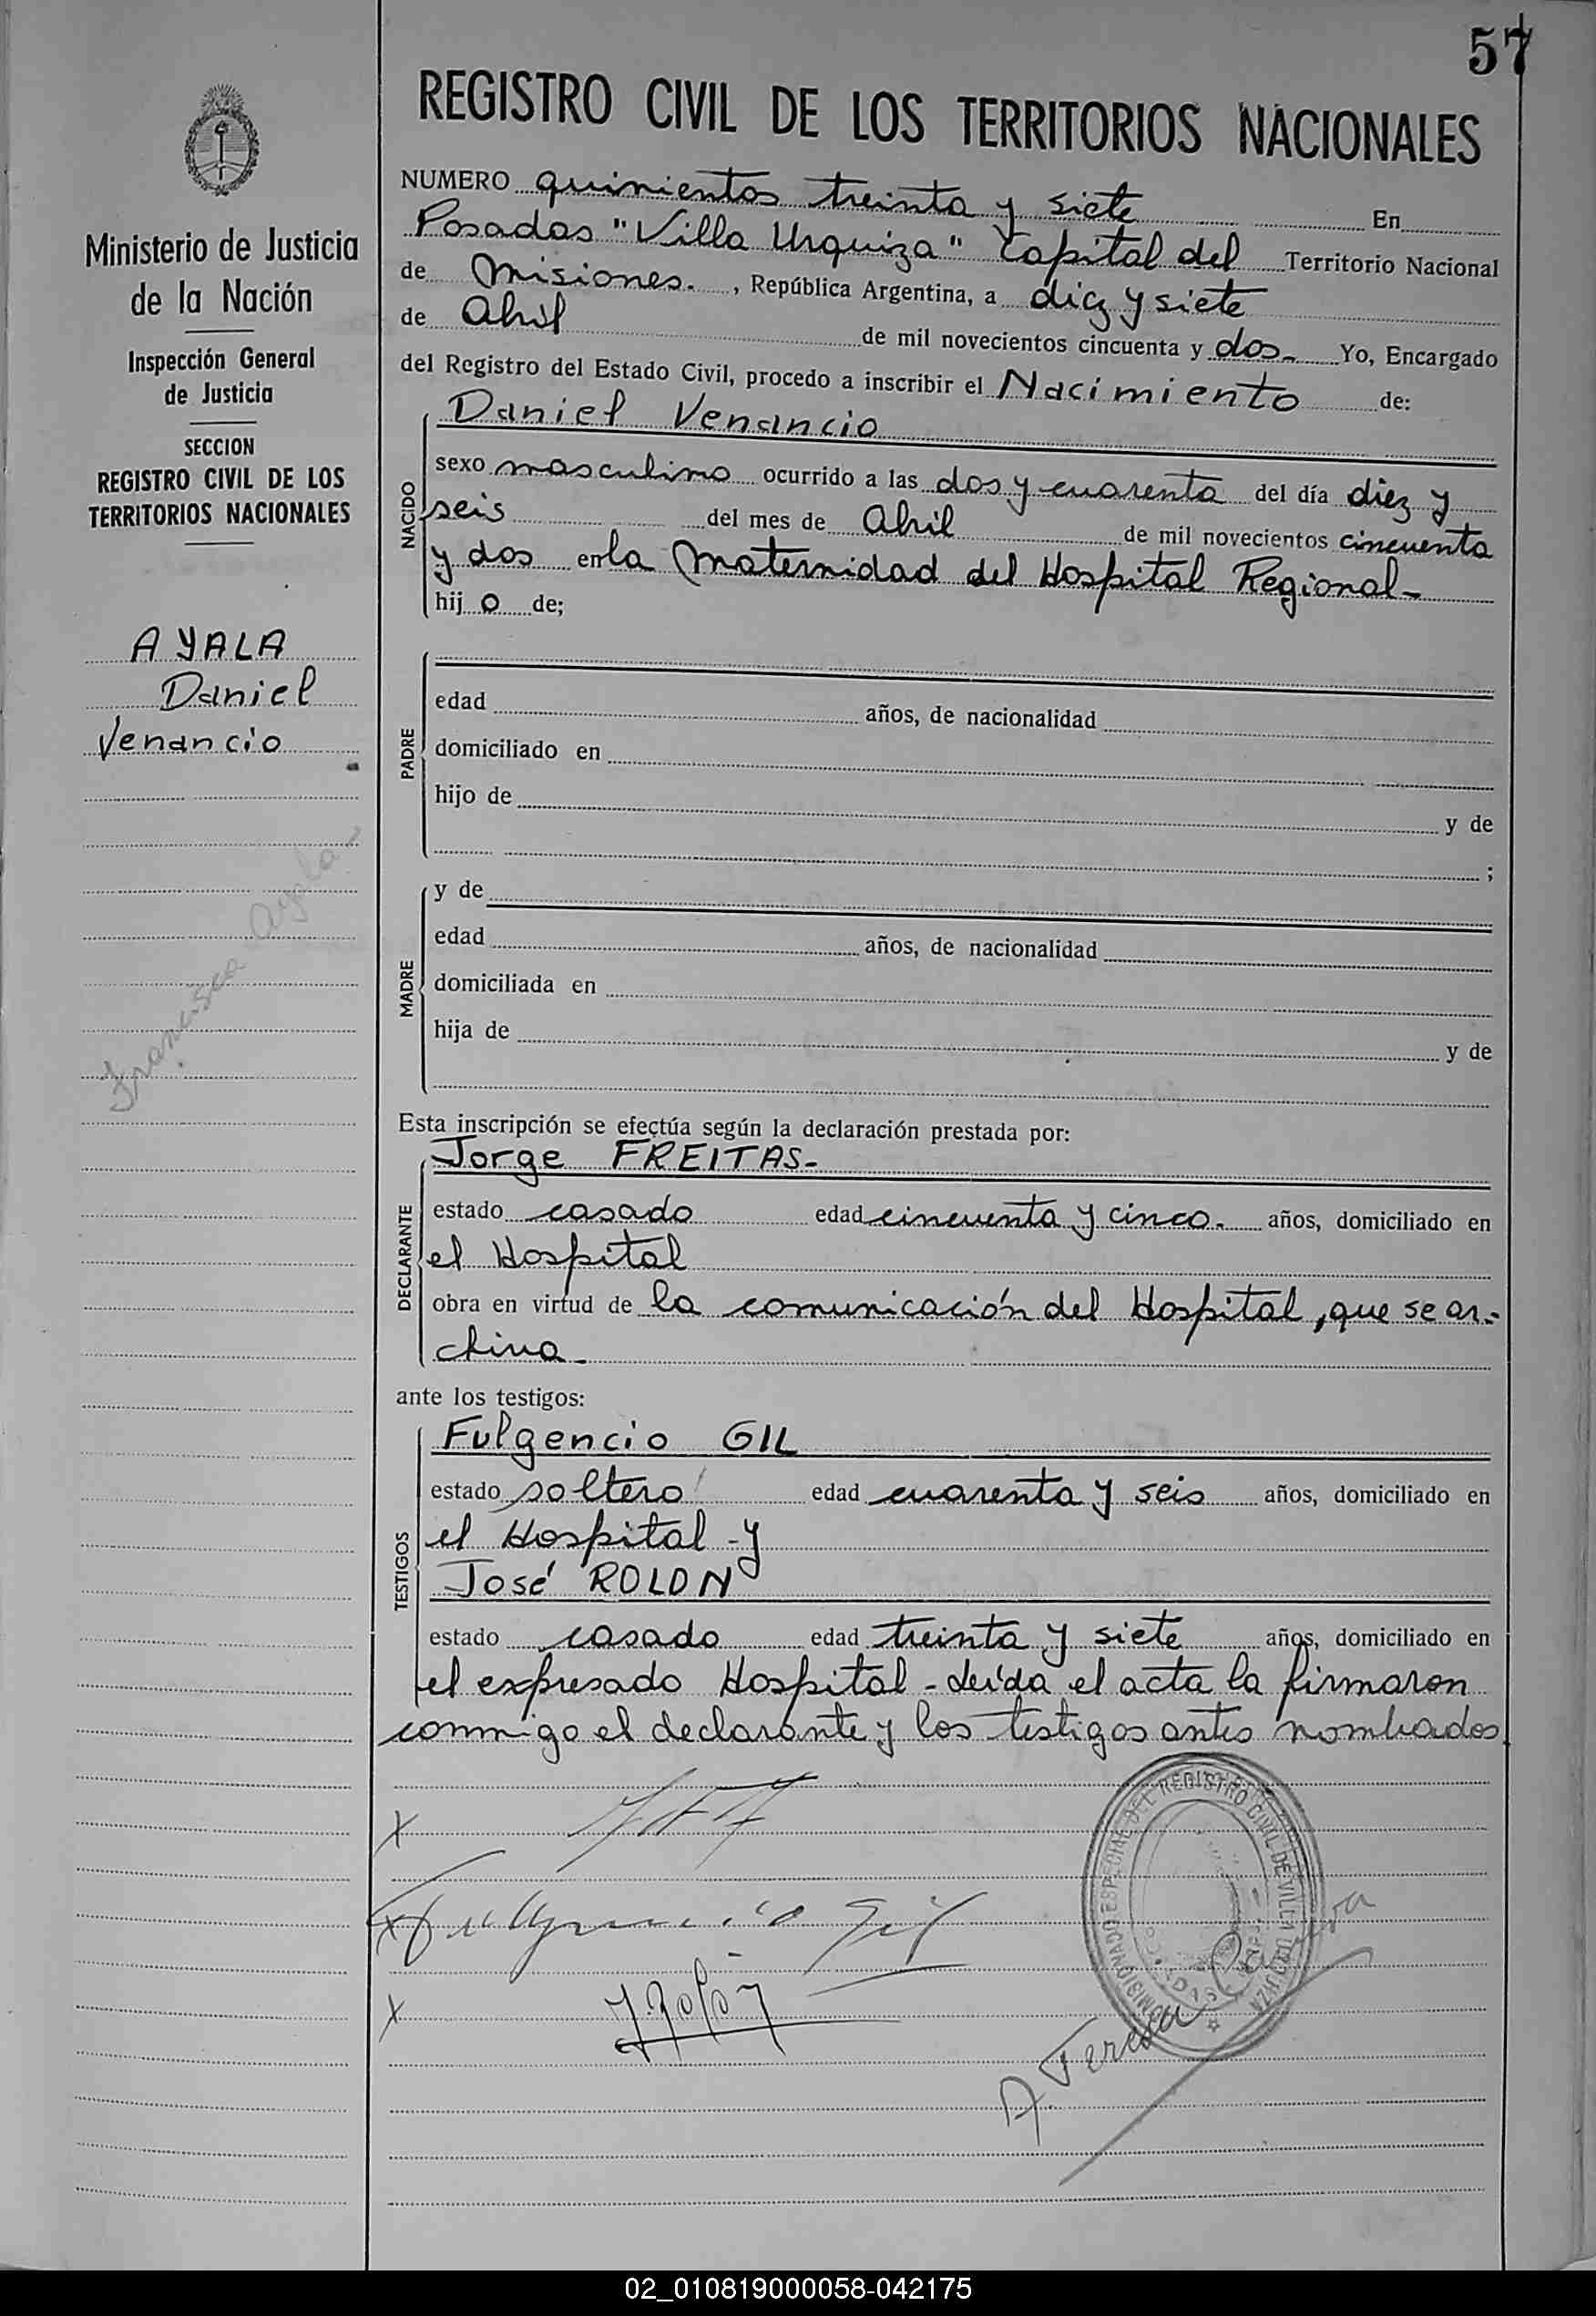 57
REGISTRO CIVIL DE LOS TERRITORIOS NACIONALES
Ministerio de Justicia
de la Nación
Inspección General
de Justicia
SECCION
REGISTRO CIVIL DE LOS
TERRITORIOS NACIONALES
AYALA
Daniel
Venancio
Francisca Ayala
NUMERO quinientos treinta y siete En
Posadas "Villa Urquiza" Capital del Territorio Nacional
de Misiones. , República Argentina, a diez y siete
de Abril de mil novecientos cincuenta y dos- Yo, Encargado
del Registro del Estado Civil, procedo a inscribir el Nacimiento de:
NACIDO
Daniel Venancio
sexo masculino ocurrido a las dos y cuarenta del día diez y
seis del mes de Abril de mil novecientos cincuenta
y dos en la Maternidad del Hospital Regional-
hijo de;
PADRE
edad años, de nacionalidad
domiciliado en
hijo de y de
;
MADRE
y de
edad años, de nacionalidad
domiciliada en
hija de y de
Esta inscripción se efectúa según la declaración prestada por:
DECLARANTE
Jorge FREITAS-
estado casado edad cincuenta y cinco. años, domiciliado en
el Hospital
obra en virtud de la comunicación del Hospital, que se ar-
chiva-
ante los testigos:
TESTIGOS
Fulgencio GIL
estado soltero edad cuarenta y seis años, domiciliado en
el Hospital - y
José ROLON
estado casado edad treinta y siete años, domiciliado en
el expresado Hospital - Leída el acta la firmaron
conmigo el declarante y los testigos antes nombrados
x
x Fulgencio Gil
x J. Rolón
COMISIONADO ESPECIAL DEL REGISTRO CIVIL DE VILLA URQUIZA
A. Teresa
02_010819000058-042175